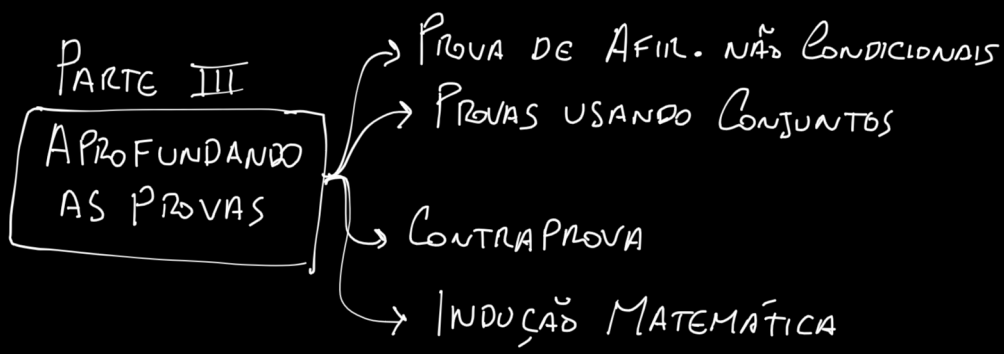 PARTE III
APROFUNDANDO
AS PROVAS
PROVA DE AFIR. NÃO CONDICIONAIS
PROVAS USANDO CONJUNTOS
CONTRAPROVA
INDUÇÃO MATEMÁTICA